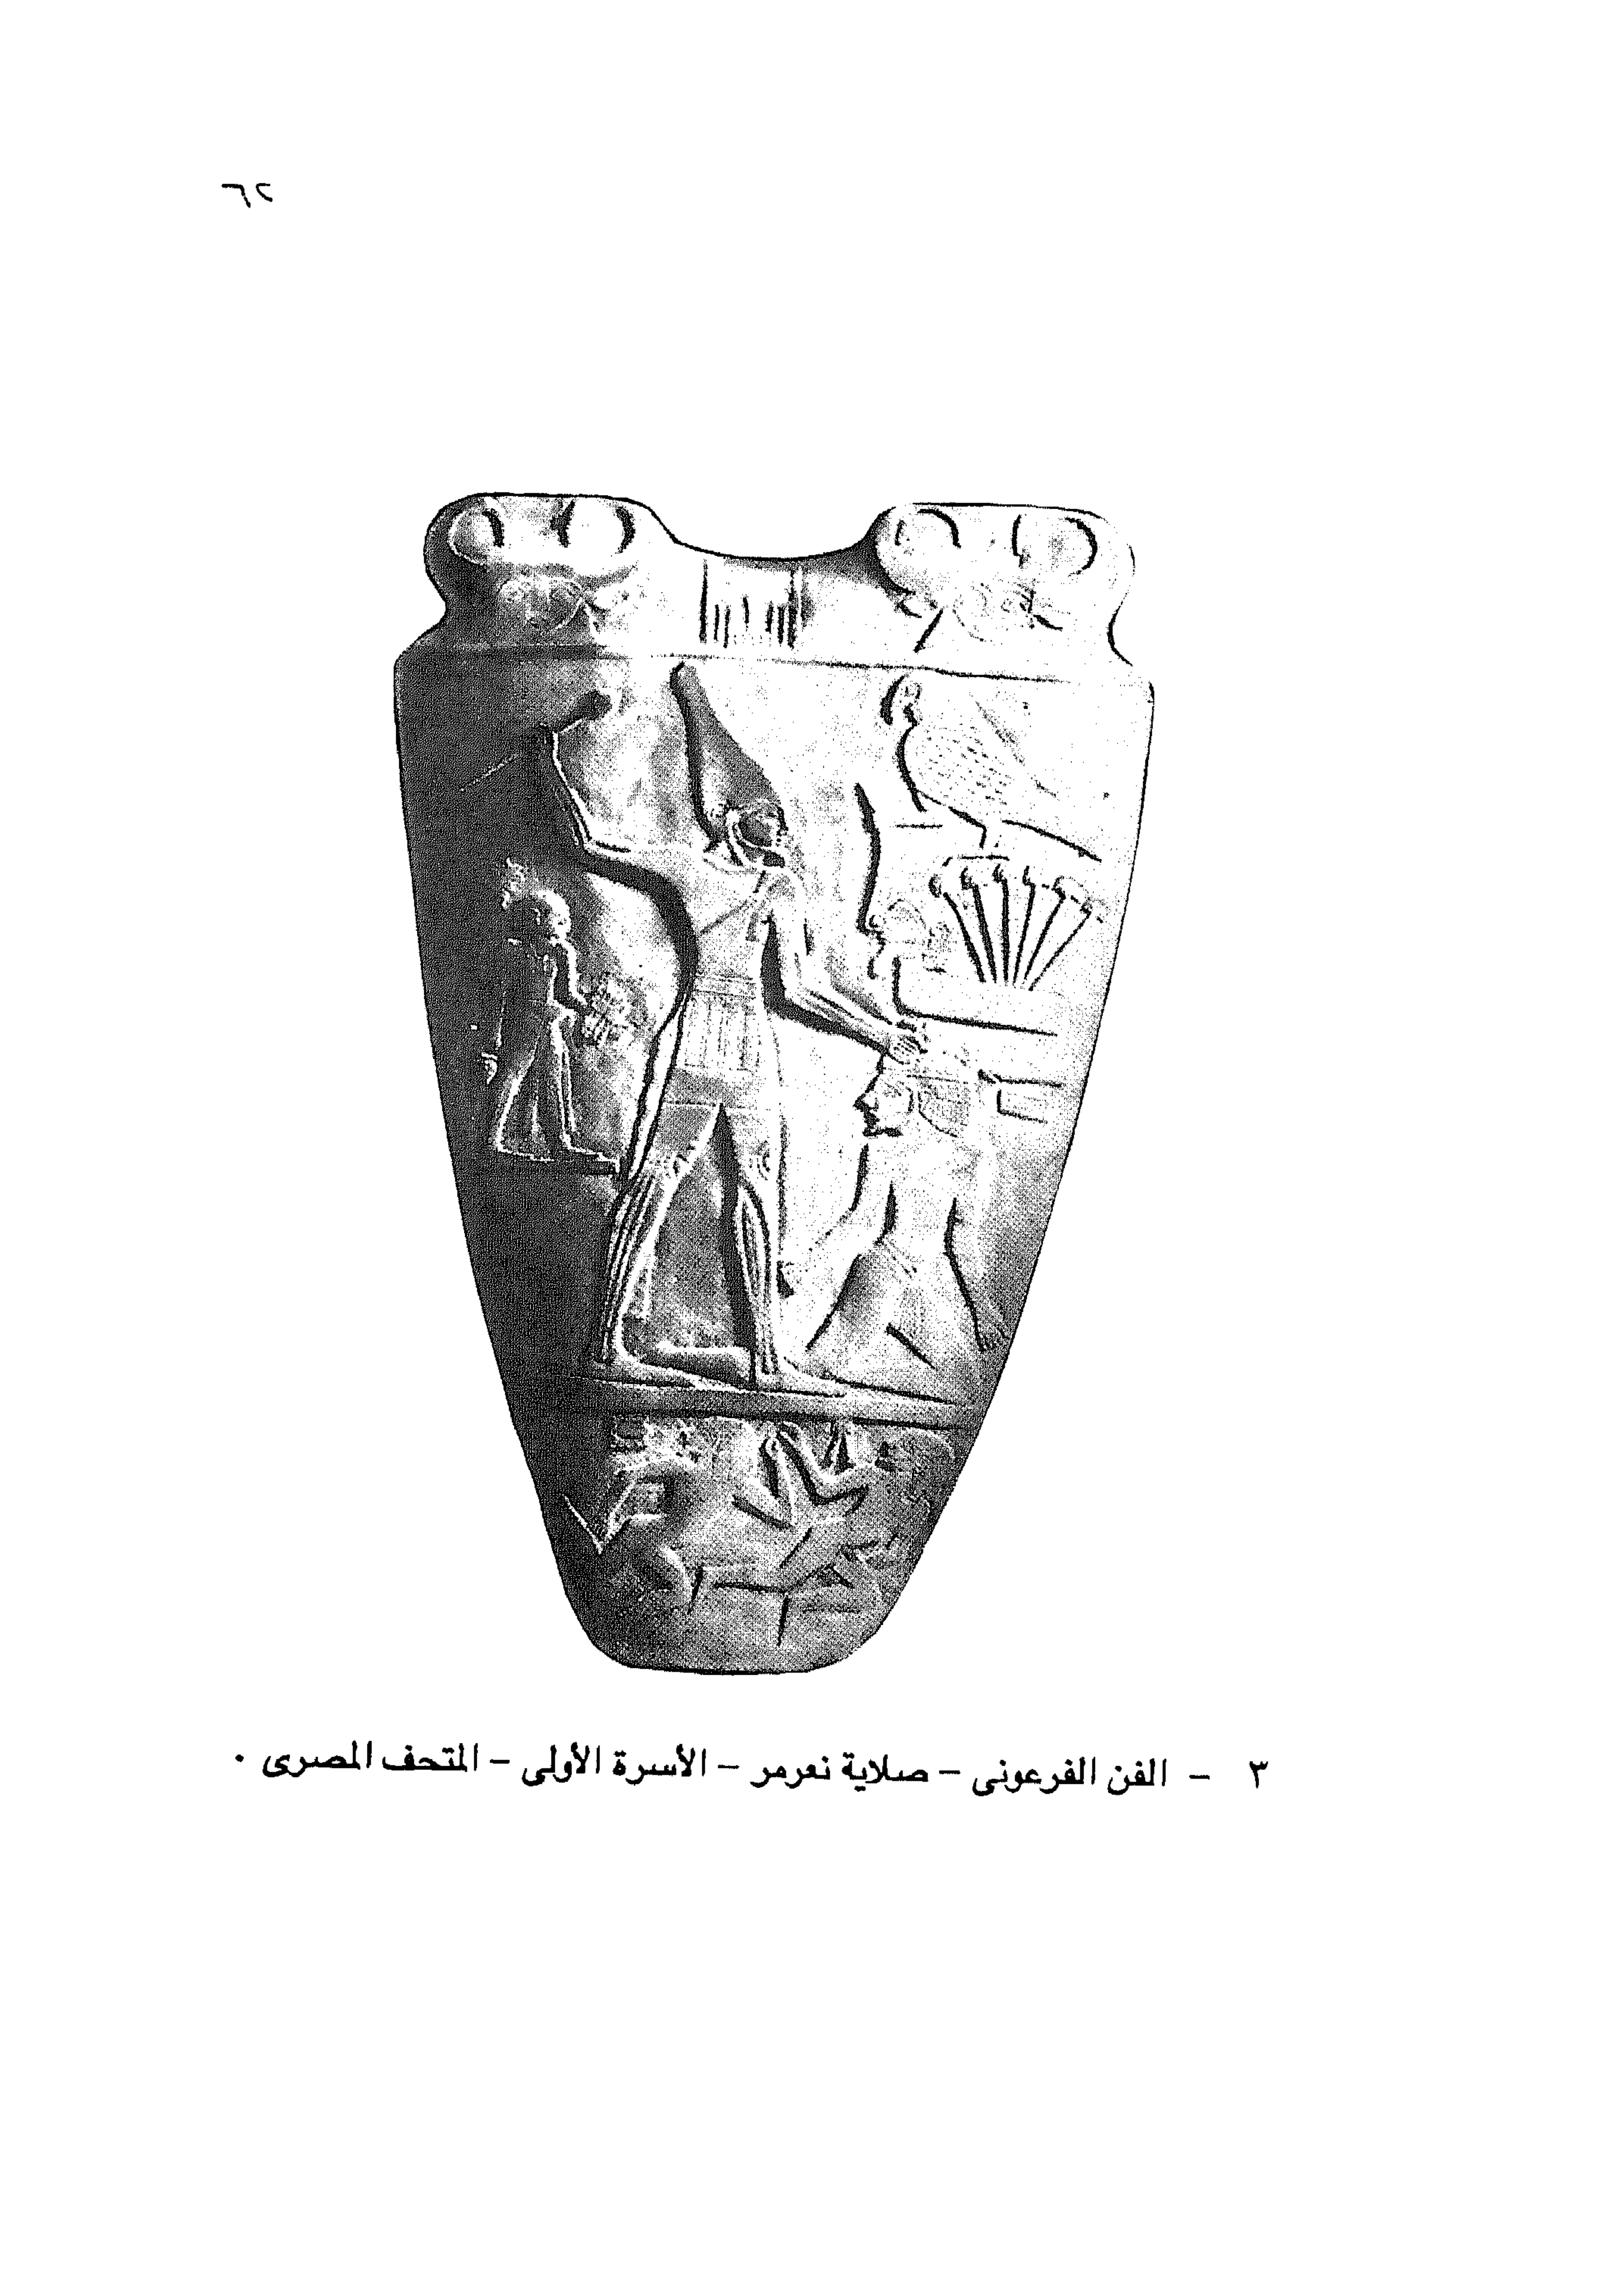 ٣ - الفن الفرعونى - صلاية نعرمر - الأسرة الأولى - المتحف المصرى .